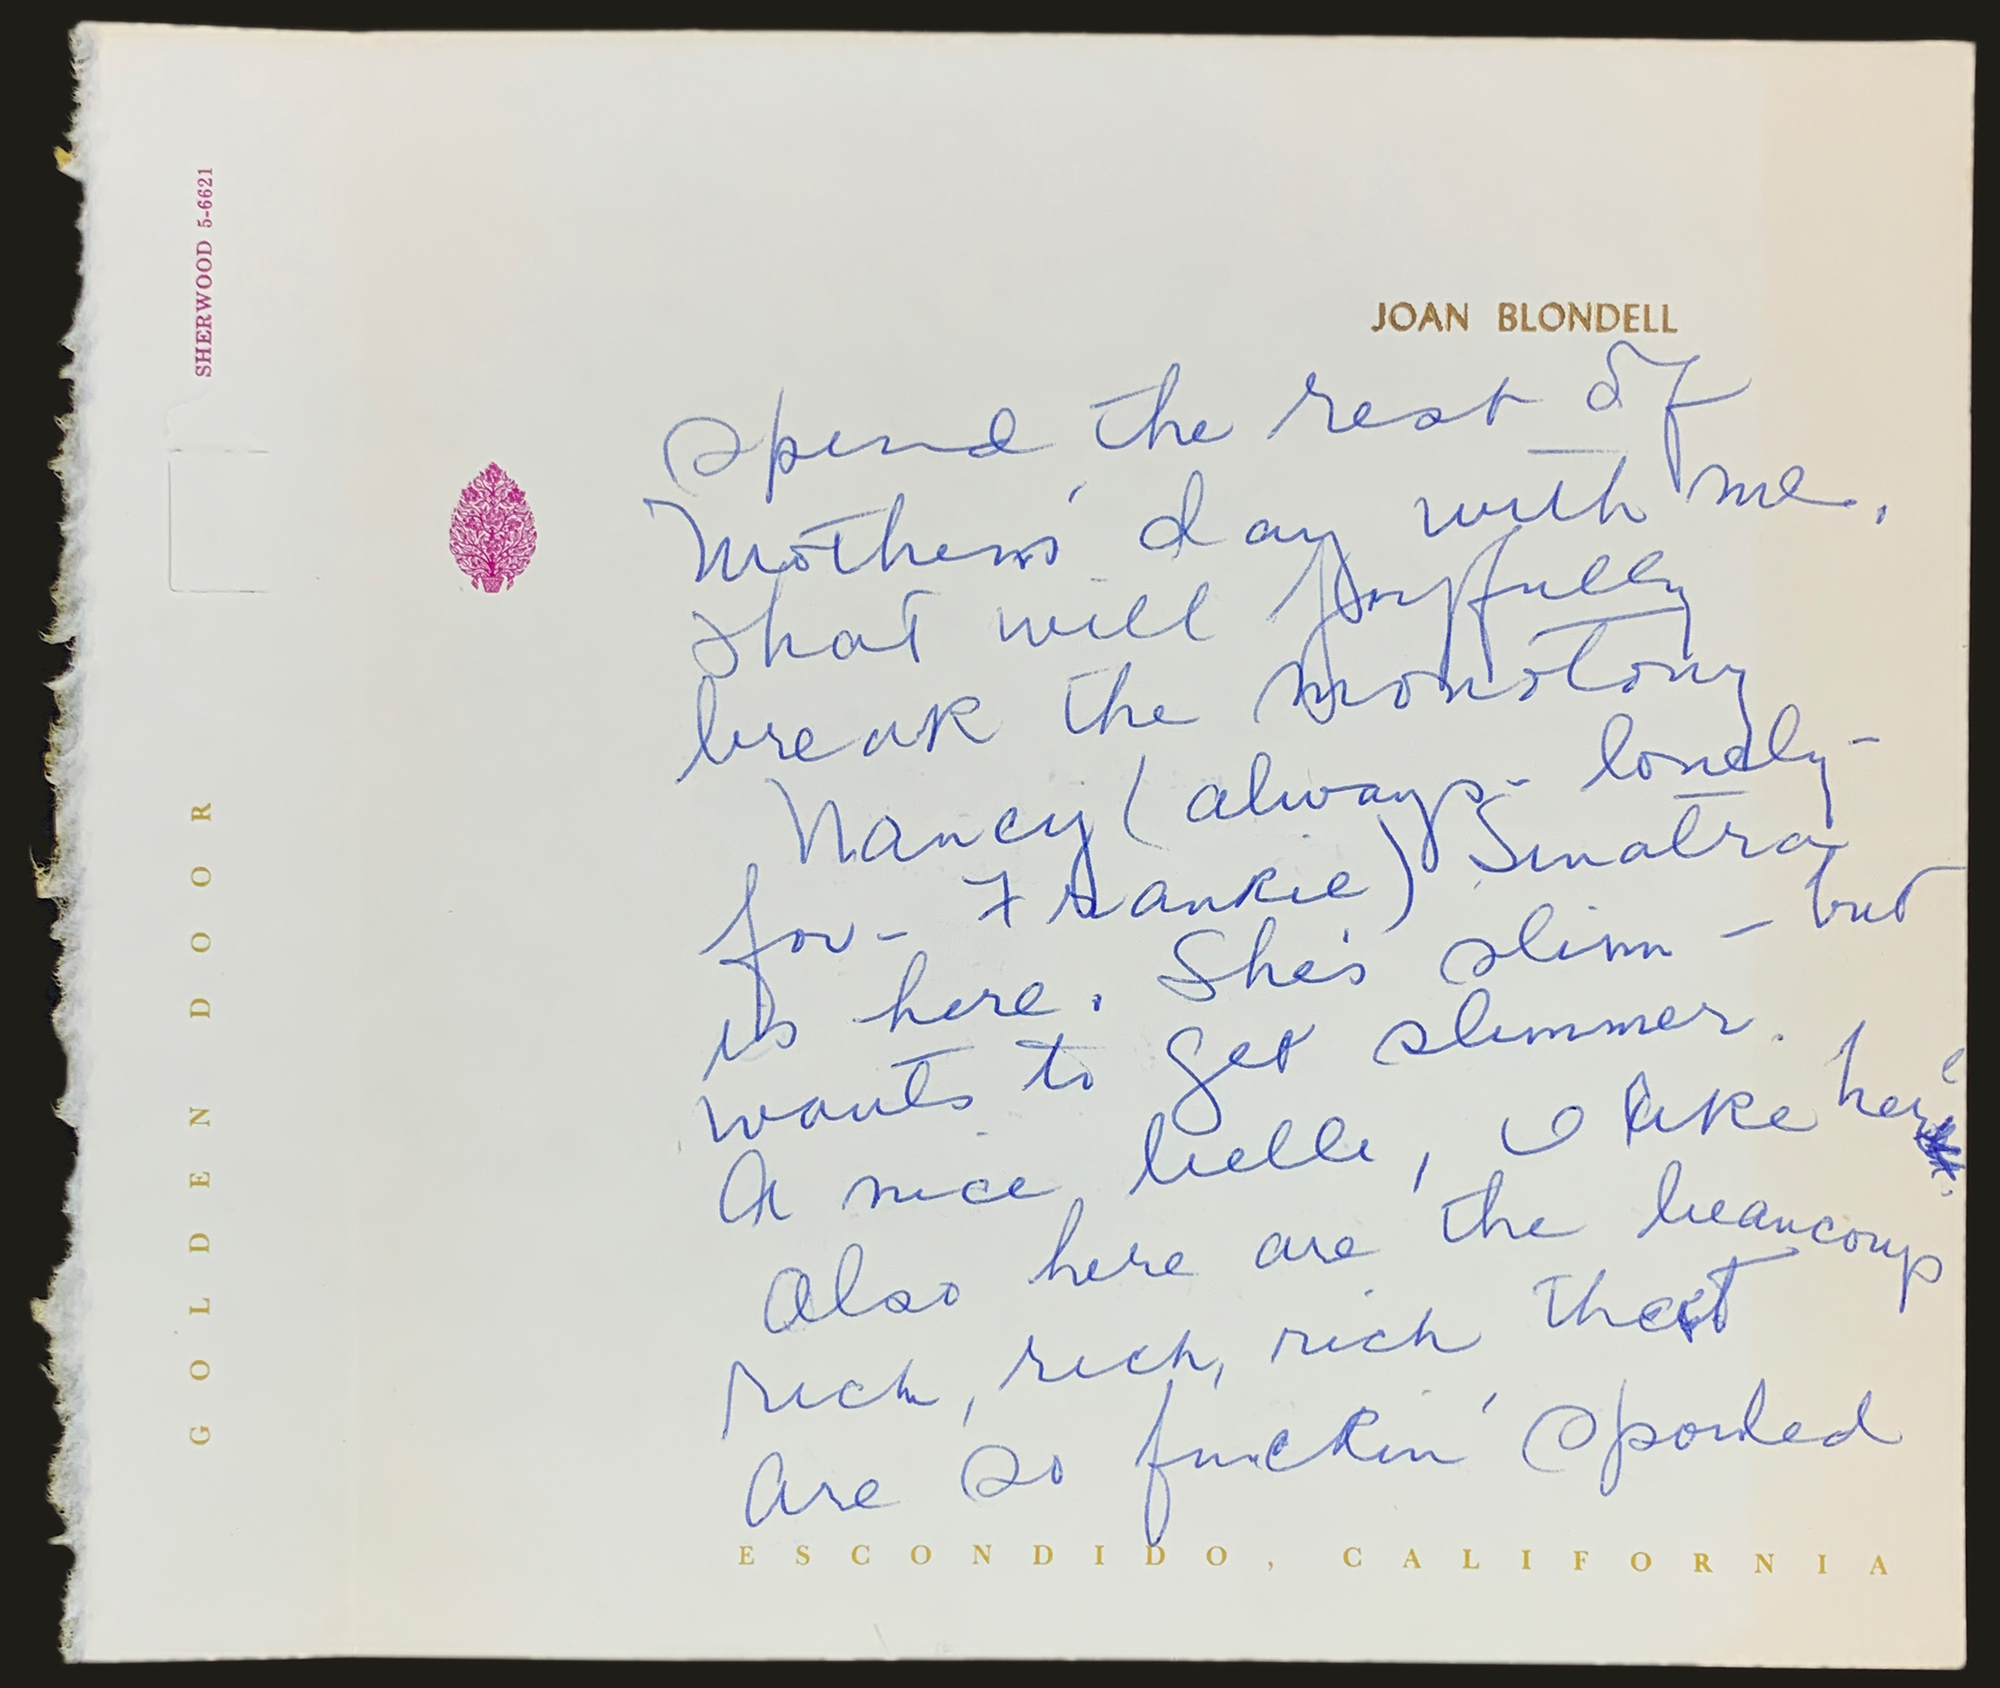 SHERWOOD 5-6621
GOLDEN DOOR
JOAN BLONDELL
spend the rest of
Mothers' day with me.
That will joyfully
break the monotony
Nancy (always - lonely -
for - Frankie) Sinatra
is here. She's slim - but
wants to get slimmer.
A nice belle, I like her
Also here are the beaucoup
rich, rich, rich that
are so fuckin' spoiled
ESCONDIDO, CALIFORNIA